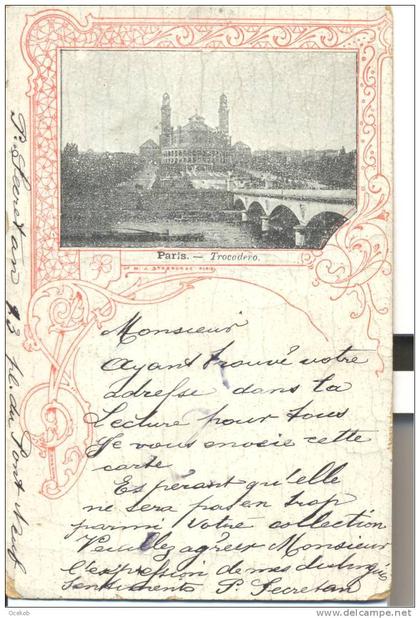 Paris. — Trocadero.
Monsieur
Ayant trouvé votre
adresse dans la
Lecture pour tous
Je vous envoie cette
carte
Espérant qu'elle
ne sera pas en trop
parmi votre collection
Veuillez agréer Monsieur
l'expression de mes distingués
Sentiments P. Secretan
P. Secretan 13 pl. du Pont Neuf
Ocelob
www.delcampe.net